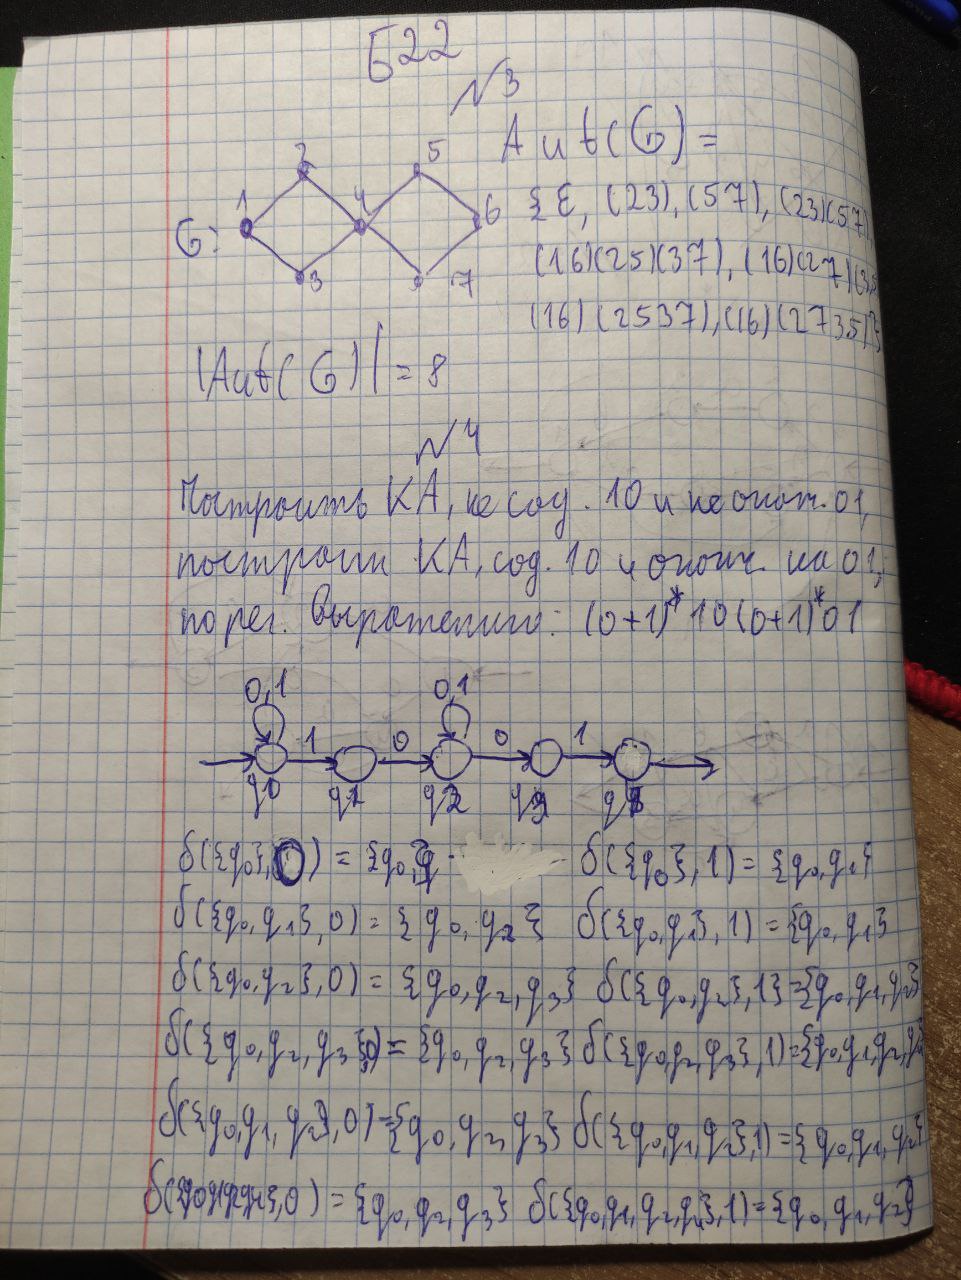 Б22
N3
2 5
1 4 6
G:
3 7
Aut(G) =
{ε, (23), (57), (23)(57),
(16)(25)(37), (16)(27)(35)
(16)(2537), (16)(2735)}
|Aut(G)| = 8
N4
Построить КА, не сод. 10 и не оконч. 01,
построим КА, сод. 10 и оконч. на 01,
по рег. выражению: (0+1)*10(0+1)*01
0,1 0,1
1 0 0 1
q0 q1 q2 q3
δ({q0}, 0) = {q0} δ({q0}, 1) = {q0, q1}
δ({q0, q1}, 0) = {q0, q2} δ({q0, q1}, 1) = {q0, q1}
δ({q0, q2}, 0) = {q0, q2, q3} δ({q0, q2}, 1} = {q0, q1, q2}
δ({q0, q2, q3}, 0) = {q0, q2, q3} δ({q0, q2, q3}, 1) = {q0, q1, q2, q4
δ({q0, q1, q2}, 0) = {q0, q2, q3} δ({q0, q1, q2}, 1) = {q0, q1, q2}
δ({q0 q1 q2 q4}, 0) = {q0, q2, q3} δ({q0, q1, q2, q4}, 1) = {q0, q1, q2}